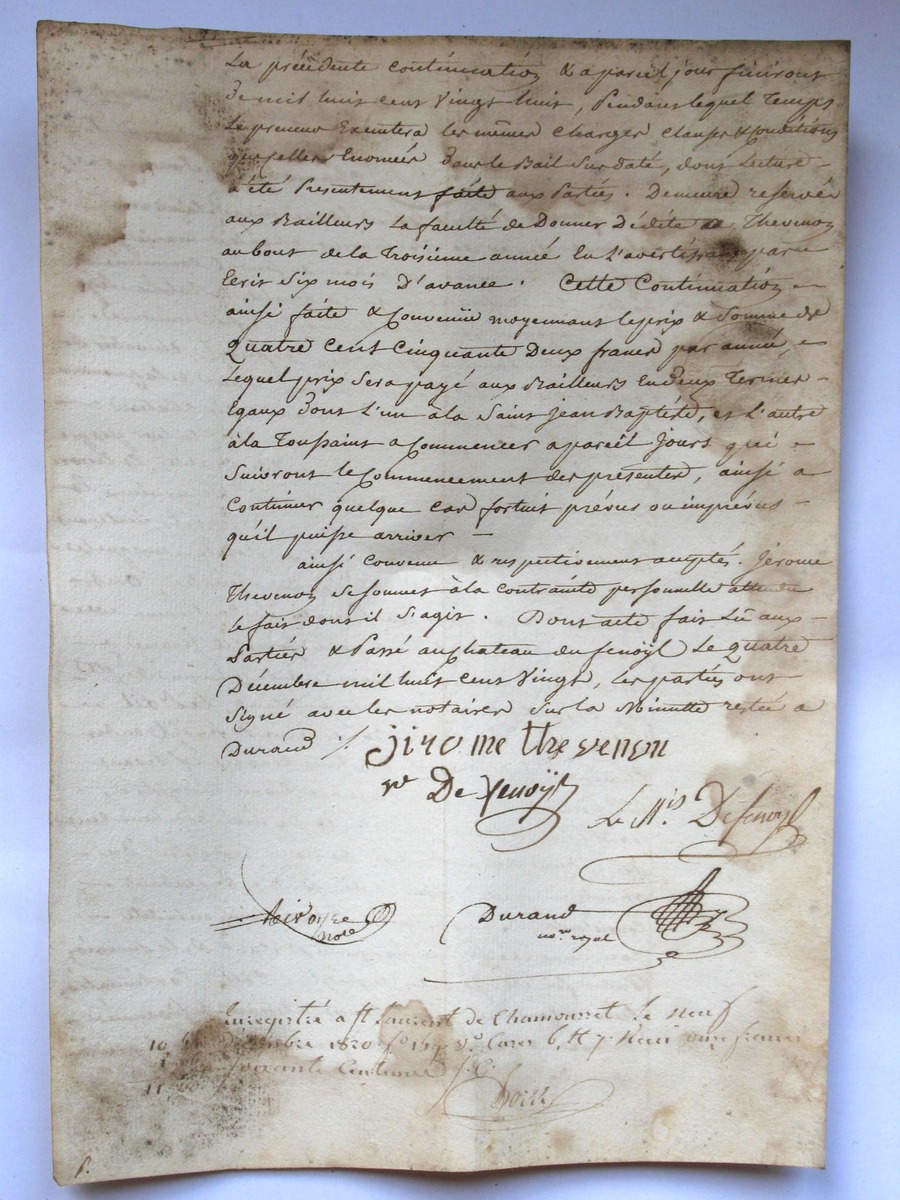 La précédente continuation & a pareil jour finiront
De mil huit cent vingt huit, Pendant lequel Temps
Le preneur Executera les mêmes charges clauses & Conditions
que celles Enoncées dans le Bail Sus daté, dont Lecture
a été Presentement faite aux Parties. Demeure reservée
aux Bailleurs La faculté de Donner Dédite a Thevenon
au bout de la Troisieme année En L'avertissant par
Ecrit Six mois D'avance. Cette Continuation
ainsi faite & Convenüe moyennant le prix & Somme de
Quatre Cent Cinquante Deux francs par année,
Lequel prix Sera payé aux Bailleurs En Deux Termes
Egaux dont L'un à la Saint Jean Baptiste, et L'autre
à la Toussaint a Commencer a pareil Jours qui
Suivront le Commencement des presentes, ainsi a
Continuer quelque cas fortuit prévus ou imprévus
qu'il puisse arriver
ainsi convenu & respectivement acceptés. Jerome
Thevenon Se soumet à la contrainte personnelle attendu
le fait dont il S'agit. Dont acte fait Lû aux
Parties & Passé au Chateau du fenoÿl Le Quatre
Décembre mil huit cent Vingt, les parties ont
Signé avec les notaires Sur la Minutte restée a
Durand ./.
jirome thevenon
De fenoÿl
Le M.is De fenoyl
Durand
no.re royal
Enregistré a St Laurent de Chamousset le neuf
décembre 1820 f.o V.o Cases 6, & 7. Recu onze francs
soixante Centimes